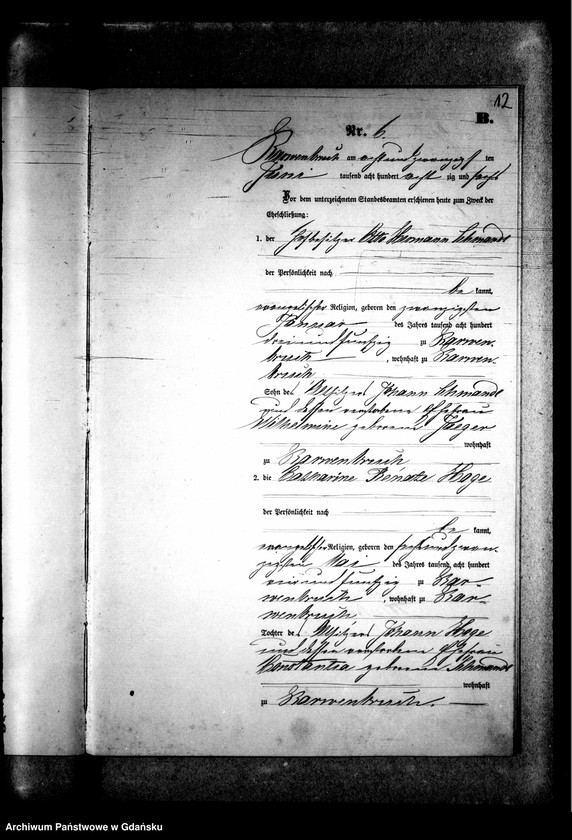 12
B.
Nr. 6.
Karwenbruch am achtundzwanzigsten
Juni tausend acht hundert achtzig und sechs
Vor dem unterzeichneten Standesbeamten erschienen heute zum Zweck der
Eheschließung:
1. der Hofbesitzer Otto Hermann Schmandt
der Persönlichkeit nach
bekannt,
evangelischer Religion, geboren den zwanzigsten
Januar des Jahres tausend acht hundert
dreiundfünfzig zu Karwen-
bruch, wohnhaft zu Karwen-
bruch
Sohn des Altsitzers Johann Schmandt
und dessen verstorbene Ehefrau
Wilhelmine geborene Jaeger
wohnhaft
zu Karwenbruch
2. die Catharine Renate Hoge
der Persönlichkeit nach
bekannt,
evangelischer Religion, geboren den sechsundzwan-
zigsten Mai des Jahres tausend acht hundert
vierundfünfzig zu Kar-
wenbruch, wohnhaft zu Kar-
wenbruch
Tochter des Altsitzers Johann Hoge
und dessen verstorbene Ehefrau
Constantia geborene Schmandt
wohnhaft
zu Karwenbruch.
Archiwum Państwowe w Gdańsku